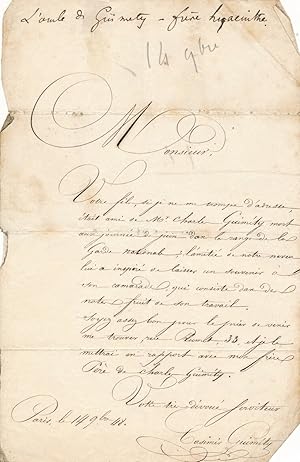 L'oncle de Guimety - frère hyacinthe.
14 9bre
Monsieur,
Votre fils, si je ne me trompe d'adresse,
était ami de Mr. Charle Guiméty mort
aux journée de juin dan le rangs de la
Garde nationale; l'amitié de notre neveu
lui a inspiré de laisser un souvenir à
son camarade, qui consiste dan des
note fruit de son travail.
Soyez assez bon pour le prier de venir
me trouver, rue 33, et je le
mettrai en rapport avec mon frère
Père de Charly Guiméty.
Votre très dévoué serviteur
Paris, le 14 9bre 48.
Casimir Guiméty